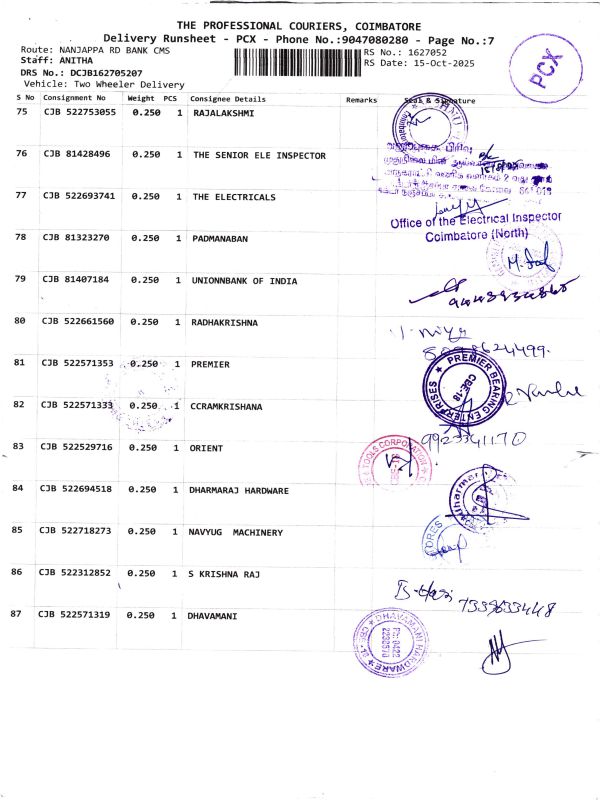 THE PROFESSIONAL COURIERS, COIMBATORE
Delivery Runsheet - PCX - Phone No.:9047080280 - Page No.:7
Route: NANJAPPA RD BANK CMS
RS No.: 1627052
Staff: ANITHA
RS Date: 15-Oct-2025
DRS No.: DCJB162705207
Vehicle: Two Wheeler Delivery
PCX
S No Consignment No Weight PCS Consignee Details Remarks Seal & Signature
75 CJB 522753055 0.250 1 RAJALAKSHMI
76 CJB 81428496 0.250 1 THE SENIOR ELE INSPECTOR
77 CJB 522693741 0.250 1 THE ELECTRICALS
Office of the Electrical Inspector
Coimbatore (North)
78 CJB 81323270 0.250 1 PADMANABAN
79 CJB 81407184 0.250 1 UNIONNBANK OF INDIA
80 CJB 522661560 0.250 1 RADHAKRISHNA
81 CJB 522571353 0.250 1 PREMIER
PREMIER BEARING ENTERPRISES
CBE-18
82 CJB 522571333 0.250 1 CCRAMKRISHANA
83 CJB 522529716 0.250 1 ORIENT
TOOLS CORPORATION
84 CJB 522694518 0.250 1 DHARMARAJ HARDWARE
85 CJB 522718273 0.250 1 NAVYUG MACHINERY
86 CJB 522312852 0.250 1 S KRISHNA RAJ
7339633448
87 CJB 522571319 0.250 1 DHAVAMANI
DHAVAMANI HARDWARE